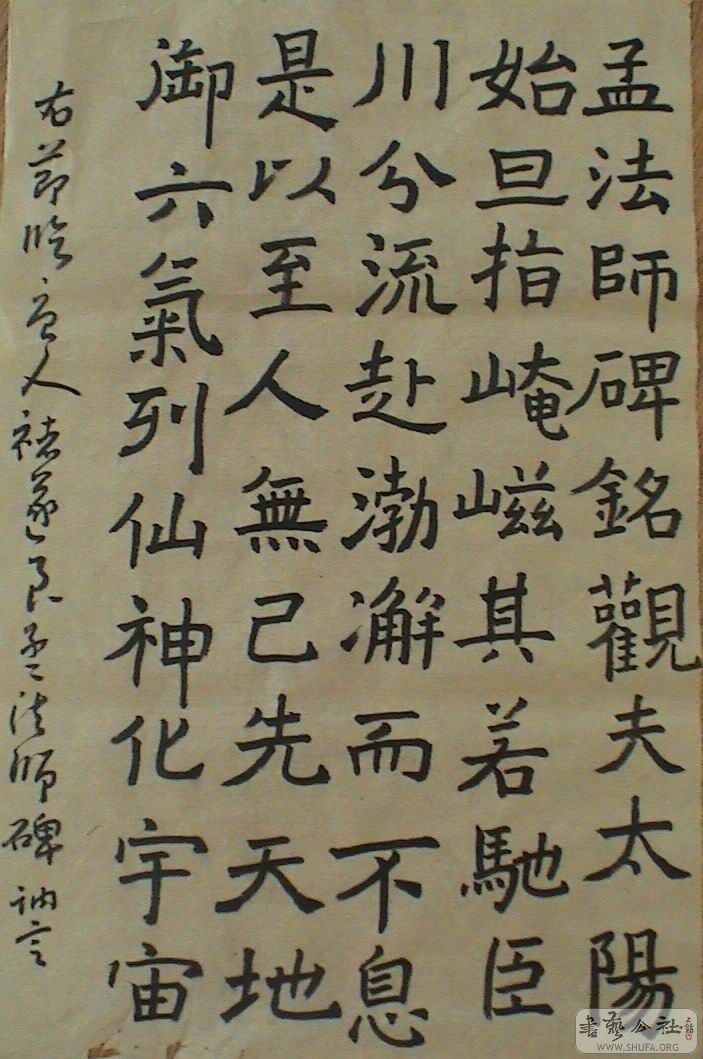 孟法師碑銘觀夫太陽
始旦指崦嵫其若馳臣
川分流赴渤澥而不息
是以至人無己先天地
御六氣列仙神化宇宙
右節臨唐人褚遂良孟法師碑 訥言
書藝公社
WWW.SHUFA.ORG